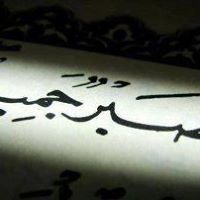 صَبْرٌ جَمِيـ